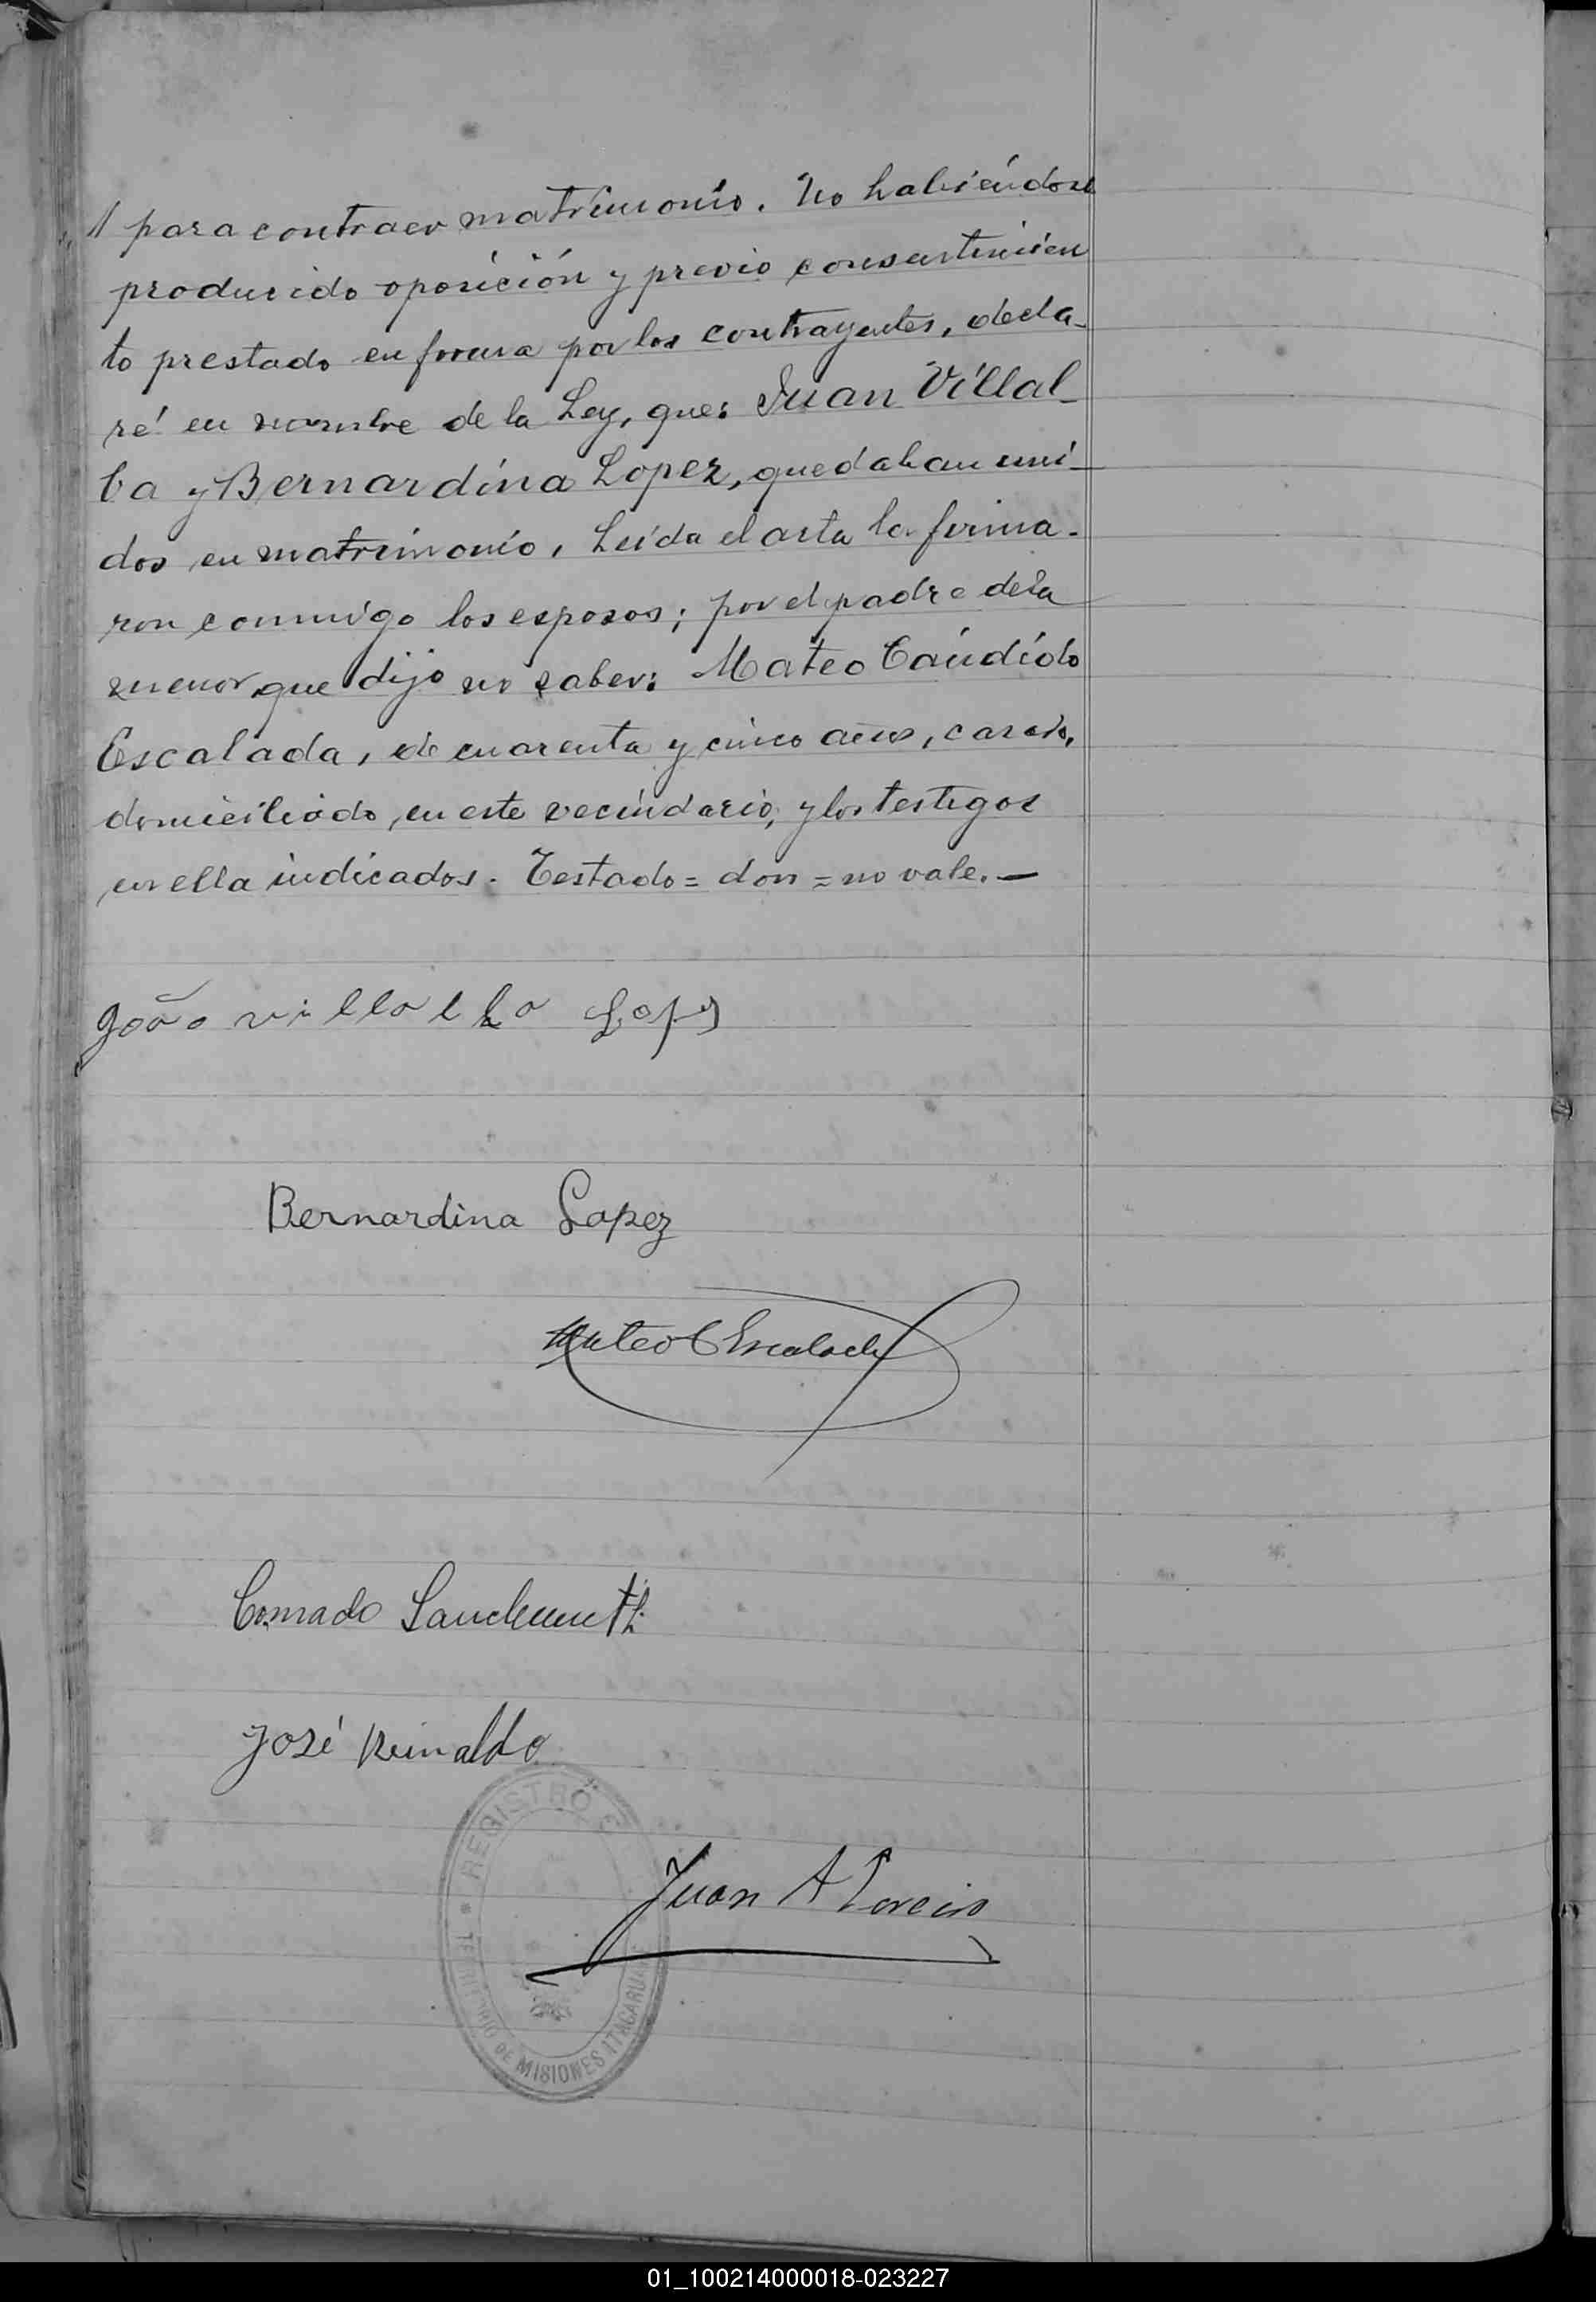 // para contraer matrimonio. No habiéndose
producido oposición y previo consentimien
to prestado en forma por los contrayentes, decla-
ré en nombre de la Ley, que: Juan Villal-
ba y Bernardina Lopez, quedaban uni-
dos en matrimonio. Leida el acta la firma-
ron conmigo los esposos; por el padre de la
menor que dijo no saber: Mateo Cándido
Escalada, de cuarenta y cinco años, casado,
domiciliado en este vecindario, y los testigos
en ella indicados. Testado = don = no vale. —
João villalba
Bernardina Lopez
Mateo C Escalada
Conrado
José Reinaldo
REGISTRO C
Juan A
TERRITORIO DE MISIONES ITACARUARE
01_100214000018-023227